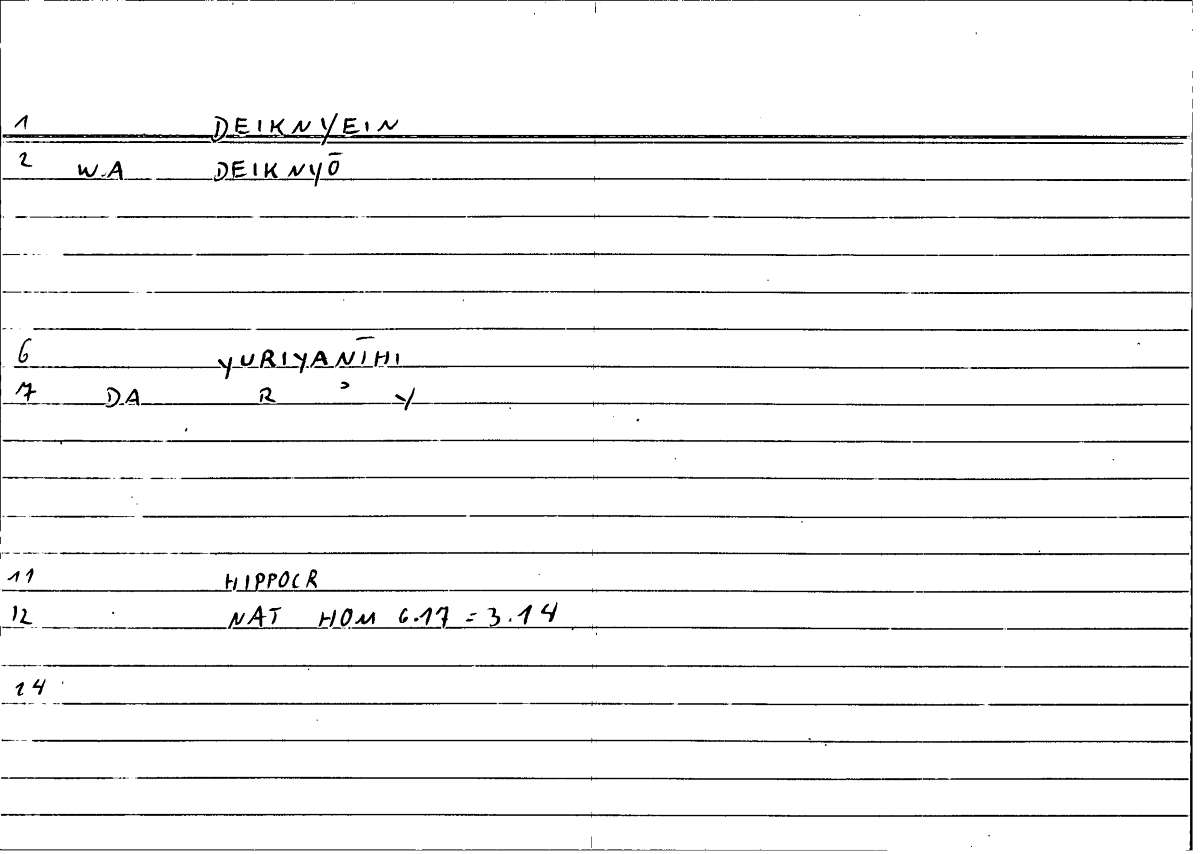 1 DEIKNYEIN
2 W.A DEIKNYŌ
6 YURIYANĪHI
7 DA R ʾ Y
11 HIPPOCR
12 NAT HOM 6.17 = 3.14
14